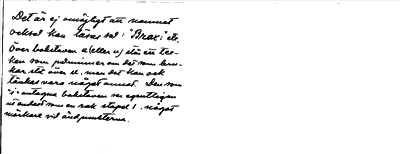 Det är ej omöjligt att namnet
också kan läsas så: "Brax" etc.
över bokstaven a (eller u) står ett tec-
ken som påminner om det som bru-
kar stå över u. men det kan ock
tänkas vara något annat. Den som
"i" antagna bokstaven ser egentligen
ut endast som en rak stapel 1. något
mörkare vid ändpunkterna.